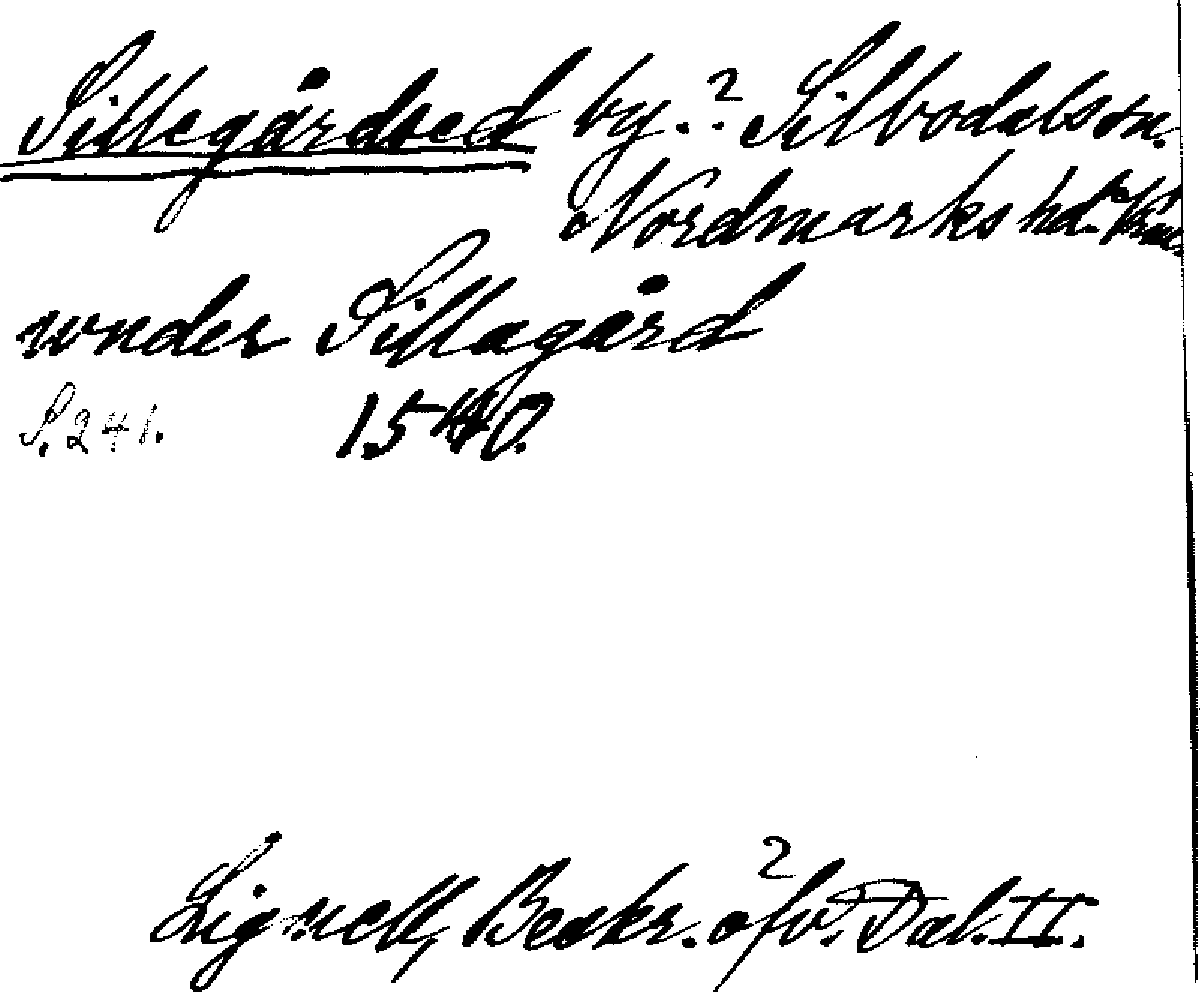 Sillegårdsed by.? Silbodals sn.
Nordmarks hd. Värml.
under Sillagård
S. 241. 1540.
Lignell, Beskr. öfv. Dal. II.